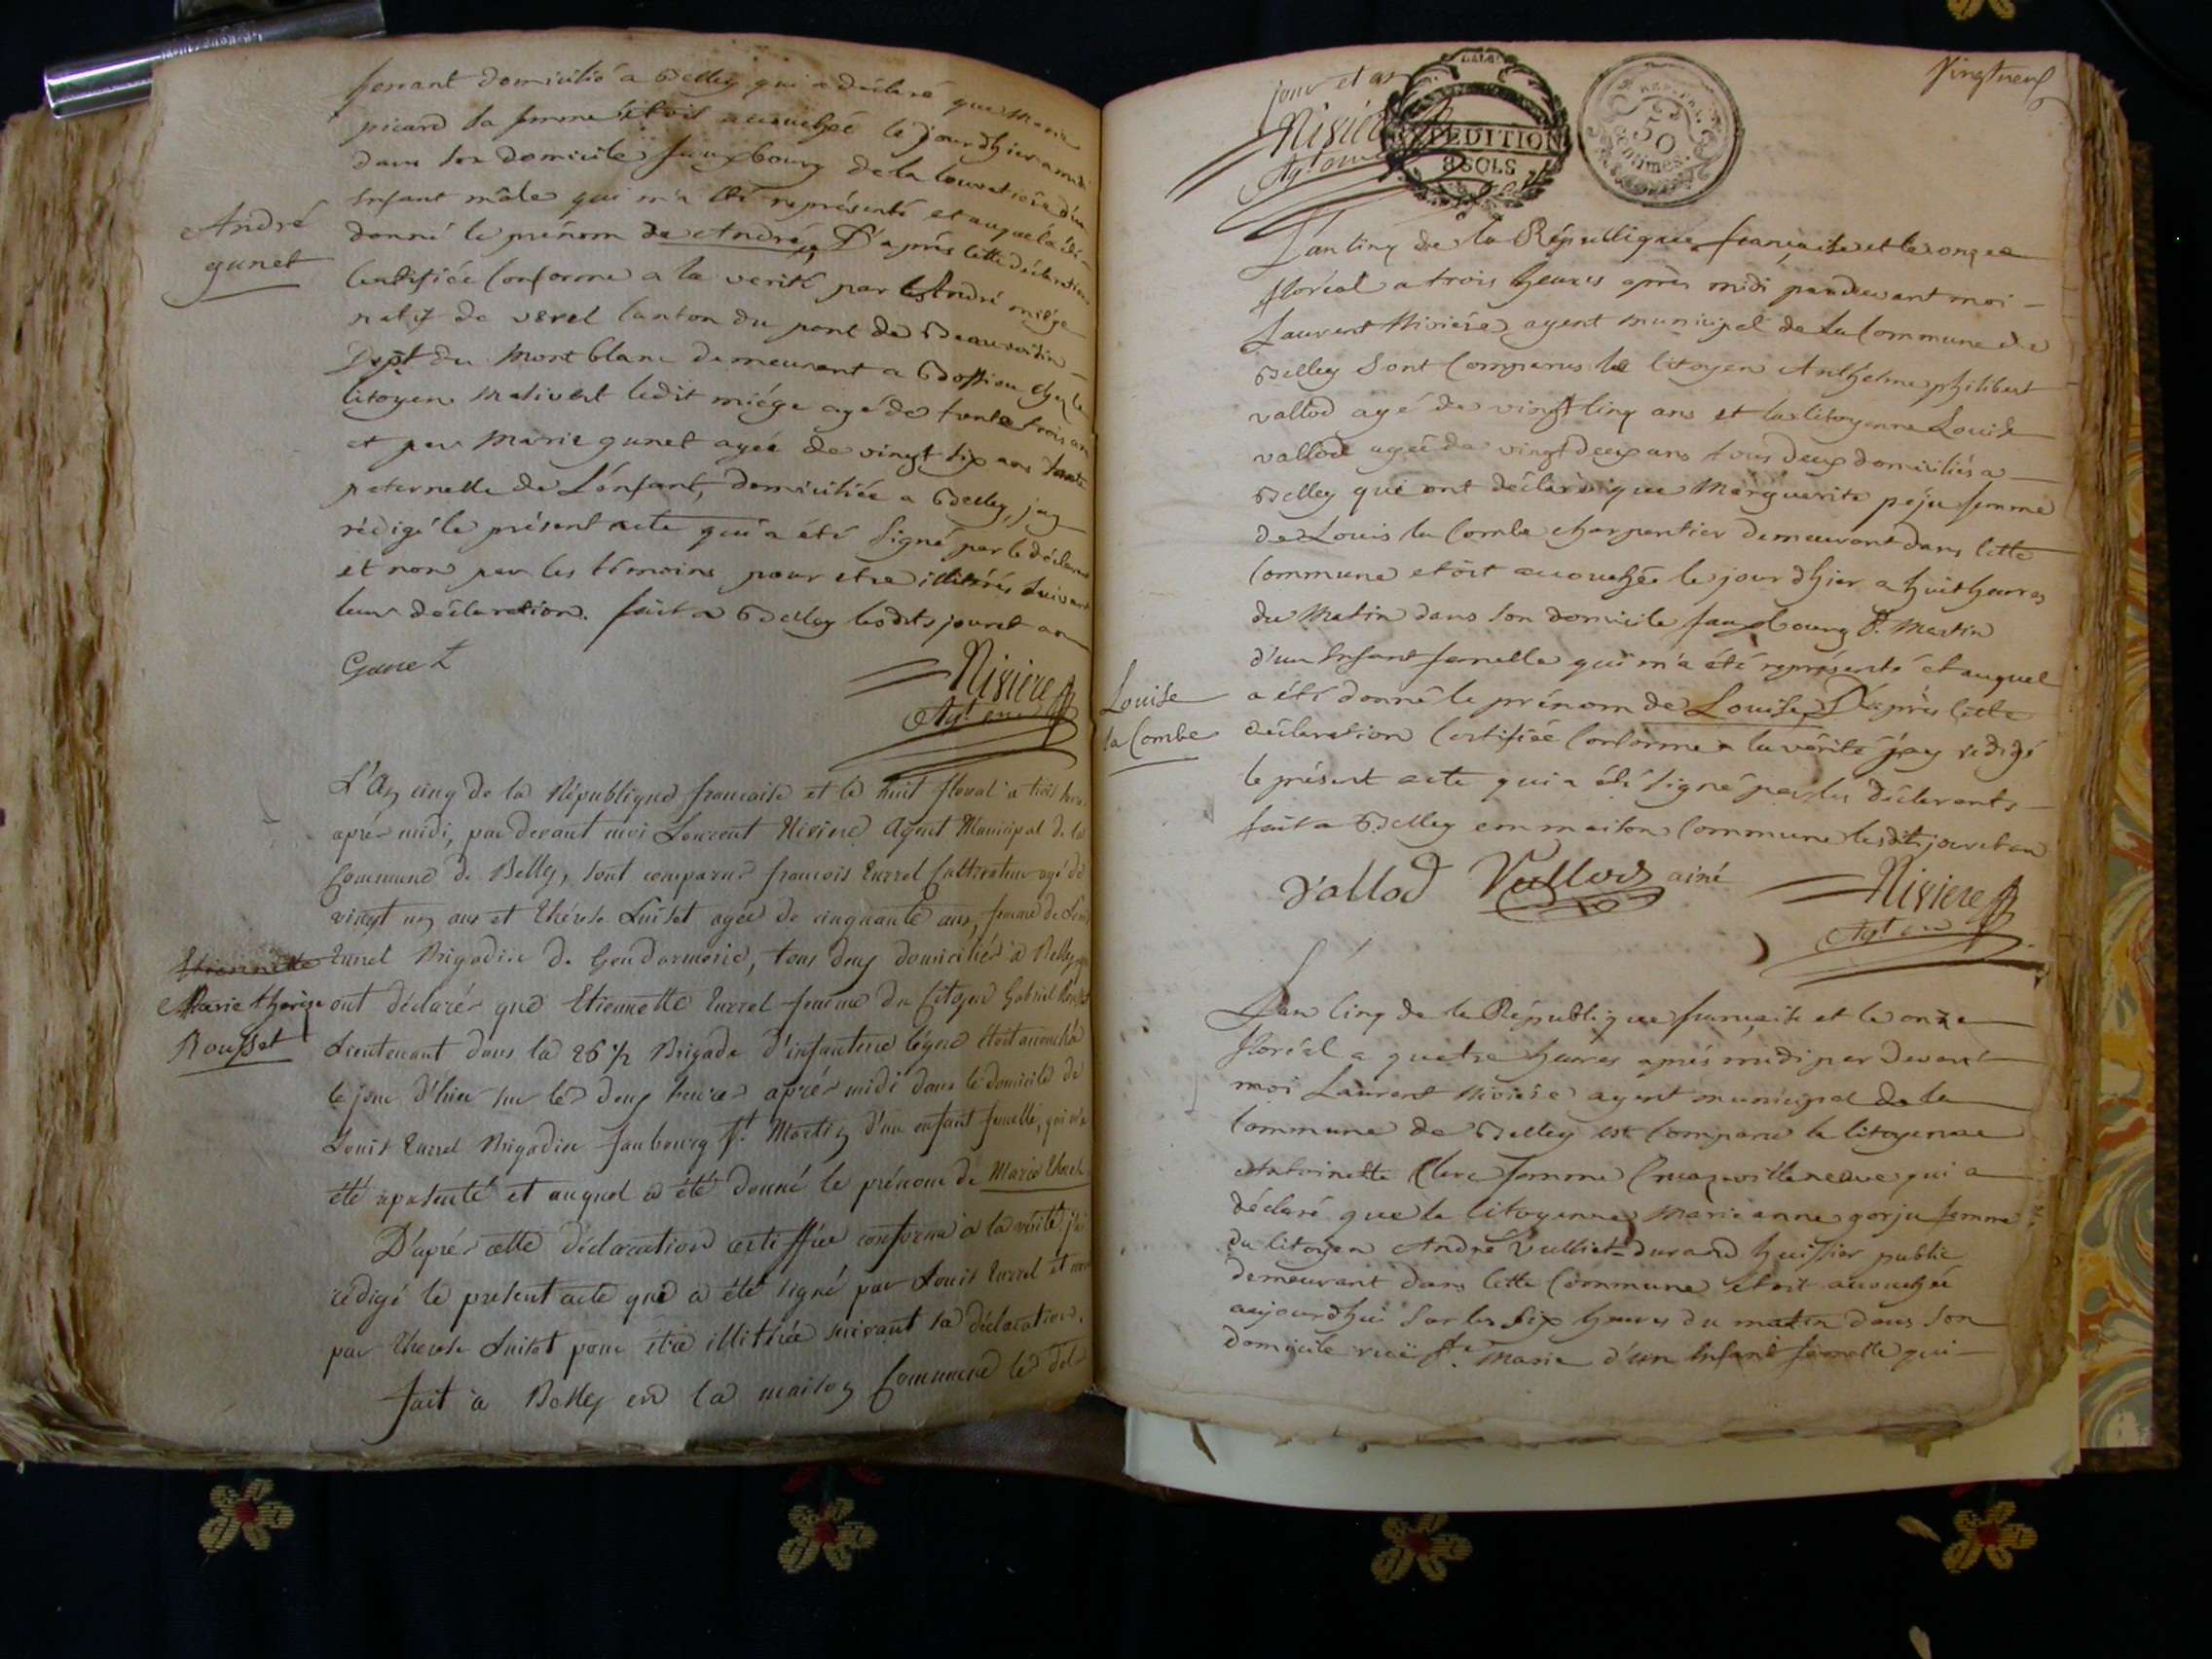 ferrant domicilié a Belley qui a déclaré que Marie
picard sa femme étoit accouchée le jour dhier a midi
dans son domicile fauxbourg de la louvatière d'un
Enfant mâle qui m'a été représenté et auquel a été
donné le prénom de André, D'après cette déclaration
Certifiée Conforme a la verité par André miége
natif de verel Canton du pont de Beauvoisin
Dept du Mont blanc demeurant a Bossieu chez le
Citoyen Mativert ledit miége agé de trente trois ans
et par Marie gunet agée de vingt six ans tante
paternelle de L'enfant, domiciliée a Belley, jay
rédigé le présent acte qui a été Signé par le déclarant
et non par les témoins pour etre illitérés Suivant
leur déclaration. fait a Belley lesdits jour et an
André
gunet
Gunet
Rivière
Agt
L'An cinq de la République francaise et le huit floreal a trois heures
après midi, par devant moi Laurent Riviere Agent Municipal de la
Commune de Belley, sont comparus francois Eurrel Cultivateur agé de
vingt un ans et Thérèse Luiset agée de cinquante ans, femme de Louis
Eurrel Brigadier de Gendarmerie, tous deux domiciliés a Belley, qui
ont déclarés que Etiennette Eurrel femme du Citoyen Gabriel Rousset
Lieutenant dans la 26 1/2 Brigade d'infanterie légere étoit accouchée
le jour d'hier sur les deux heures après midi dans le domicile de
Louis Eurrel Brigadier faubourg St Martin d'un enfant femelle, qui m'a
été représenté et auquel a été donné le prénom de Marie Therese
D'après cette déclaration certiffiée conforme a la vérité j'ai
rédigé le present acte qui a été signé par Louis Eurrel et non
par Therese Luiset pour être illitérée suivant sa déclaration.
fait a Belley en la maison Commune les dits
Etiennette
Marie thérèse
Rousset
Vingt neuf
jour et an
Rivière
Agt
EXPEDITION
8 SOLS
50
centimes
L'an Cinq de la République francaise et le onze
floréal a trois heures après midi pardevant moi
Laurent Rivière agent municipal de la Commune de
Belley Sont Comparus le Citoyen Anthelme philibert
vallod agé de vingt Cinq ans et la Citoyenne Louise
vallod agée de vingt deux ans tous deux domiciliés a
Belley qui ont déclaré que Marguerite péju femme
de Louis la Combe charpentier demeurant dans Cette
Commune etoit accouchée le jour dhier a huit heures
du Matin dans son domicile fauxbourg St. Martin
d'un Enfant femelle qui m'a été représenté et auquel
a été donné le prénom de Louise, D'après Cette
déclaration Certifiée Conforme a la vérité jay redigé
le présent acte qui a été signé par les déclarants
fait a Belley en maison Commune lesdits jour et an
Louise
la Combe
Vallod Vallod ainé Riviere
Agt
L'an Cinq de la République francaise et le onze
floréal a quatre heures après midi par devant
moi Laurent Rivière agent municipal de la
Commune de Belley est Comparue la Citoyenne
Antoinette Clerc femme villeneuve qui a
déclaré que la Citoyenne Marie anne gorju femme
du Citoyen André Vulliet-durand huissier public
demeurant dans Cette Commune etoit accouchée
aujourdhui Sur les Six heures du matin dans Son
domicile ruë Ste. Marie d'un Enfant femelle qui